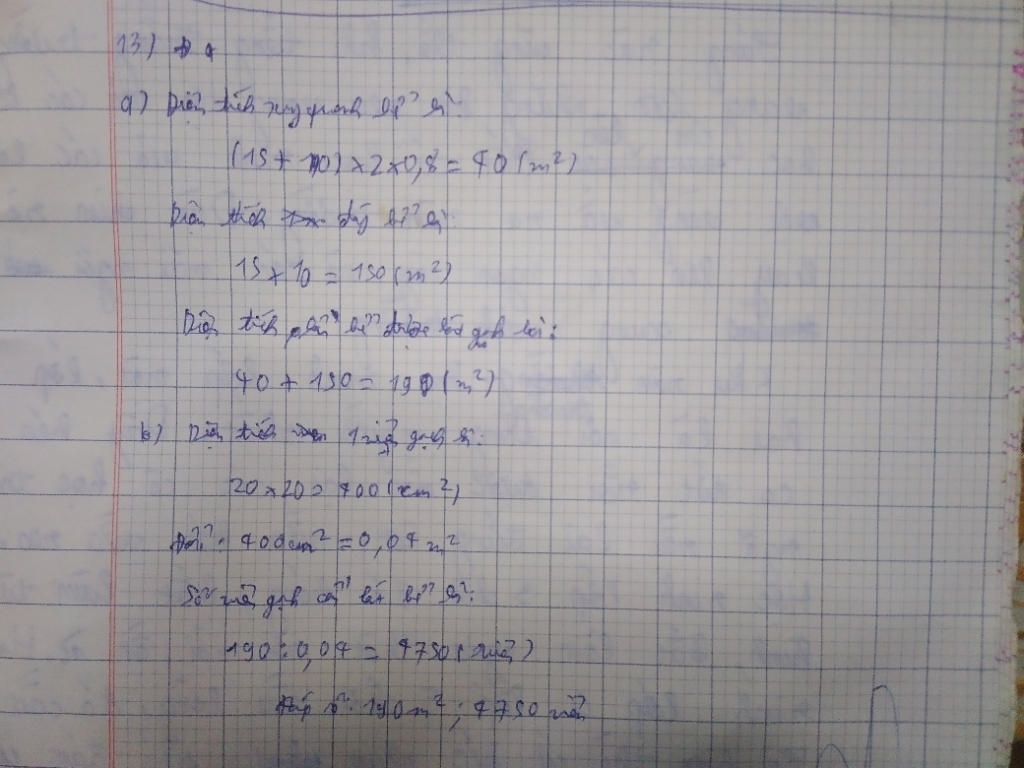 13)
a) Diện tích xung quanh bể là:
(15 + 10) × 2 × 0,8 = 40 (m²)
Diện tích đáy bể là:
15 × 10 = 150 (m²)
Diện tích phần bể được lát gạch là:
40 + 150 = 190 (m²)
b) Diện tích 1 viên gạch là:
20 × 20 = 400 (cm²)
Đổi: 400 cm² = 0,04 m²
Số viên gạch cần lát bể là:
190 : 0,04 = 4750 (viên)
Đáp số: 190 m²; 4750 viên